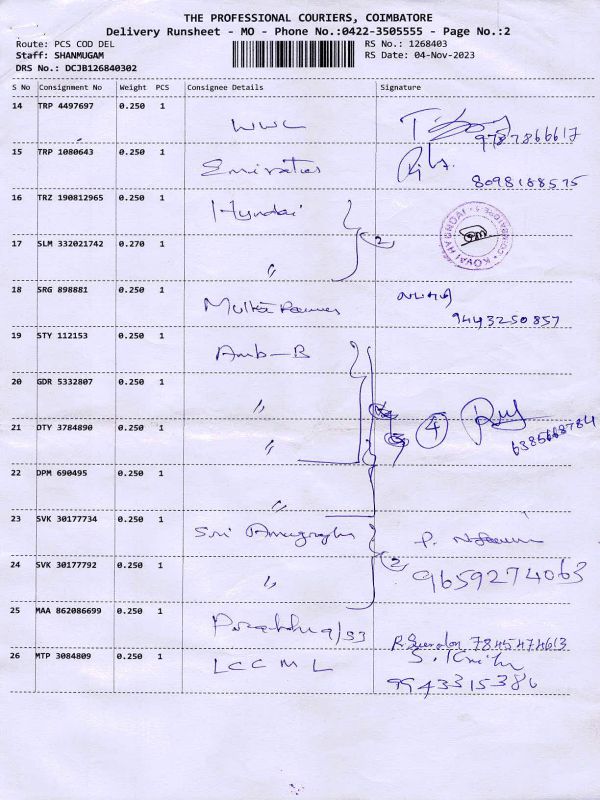 THE PROFESSIONAL COURIERS, COIMBATORE
Delivery Runsheet - MO - Phone No.:0422-3505555 - Page No.:2
Route: PCS COD DEL RS No.: 1268403
Staff: SHANMUGAM RS Date: 04-Nov-2023
DRS No.: DCJB126840302
S No Consignment No Weight PCS Consignee Details Signature
14 TRP 4497697 0.250 1 WWC 9787866617
15 TRP 1080643 0.250 1 Emirates 8098188575
16 TRZ 190812965 0.250 1 Hyundai
KOVAI HYUNDAI
17 SLM 332021742 0.270 1 〃 2
18 SRG 898881 0.250 1 9443250857
19 STY 112153 0.250 1 Amb-B
20 GDR 5332807 0.250 1 〃
21 OTY 3784890 0.250 1 〃 4
22 DPM 690495 0.250 1 〃
23 SVK 30177734 0.250 1 Sri
24 SVK 30177792 0.250 1 〃 2 9659274063
25 MAA 862086699 0.250 1 7845474613
26 MTP 3084809 0.250 1 LCCML
9943315386